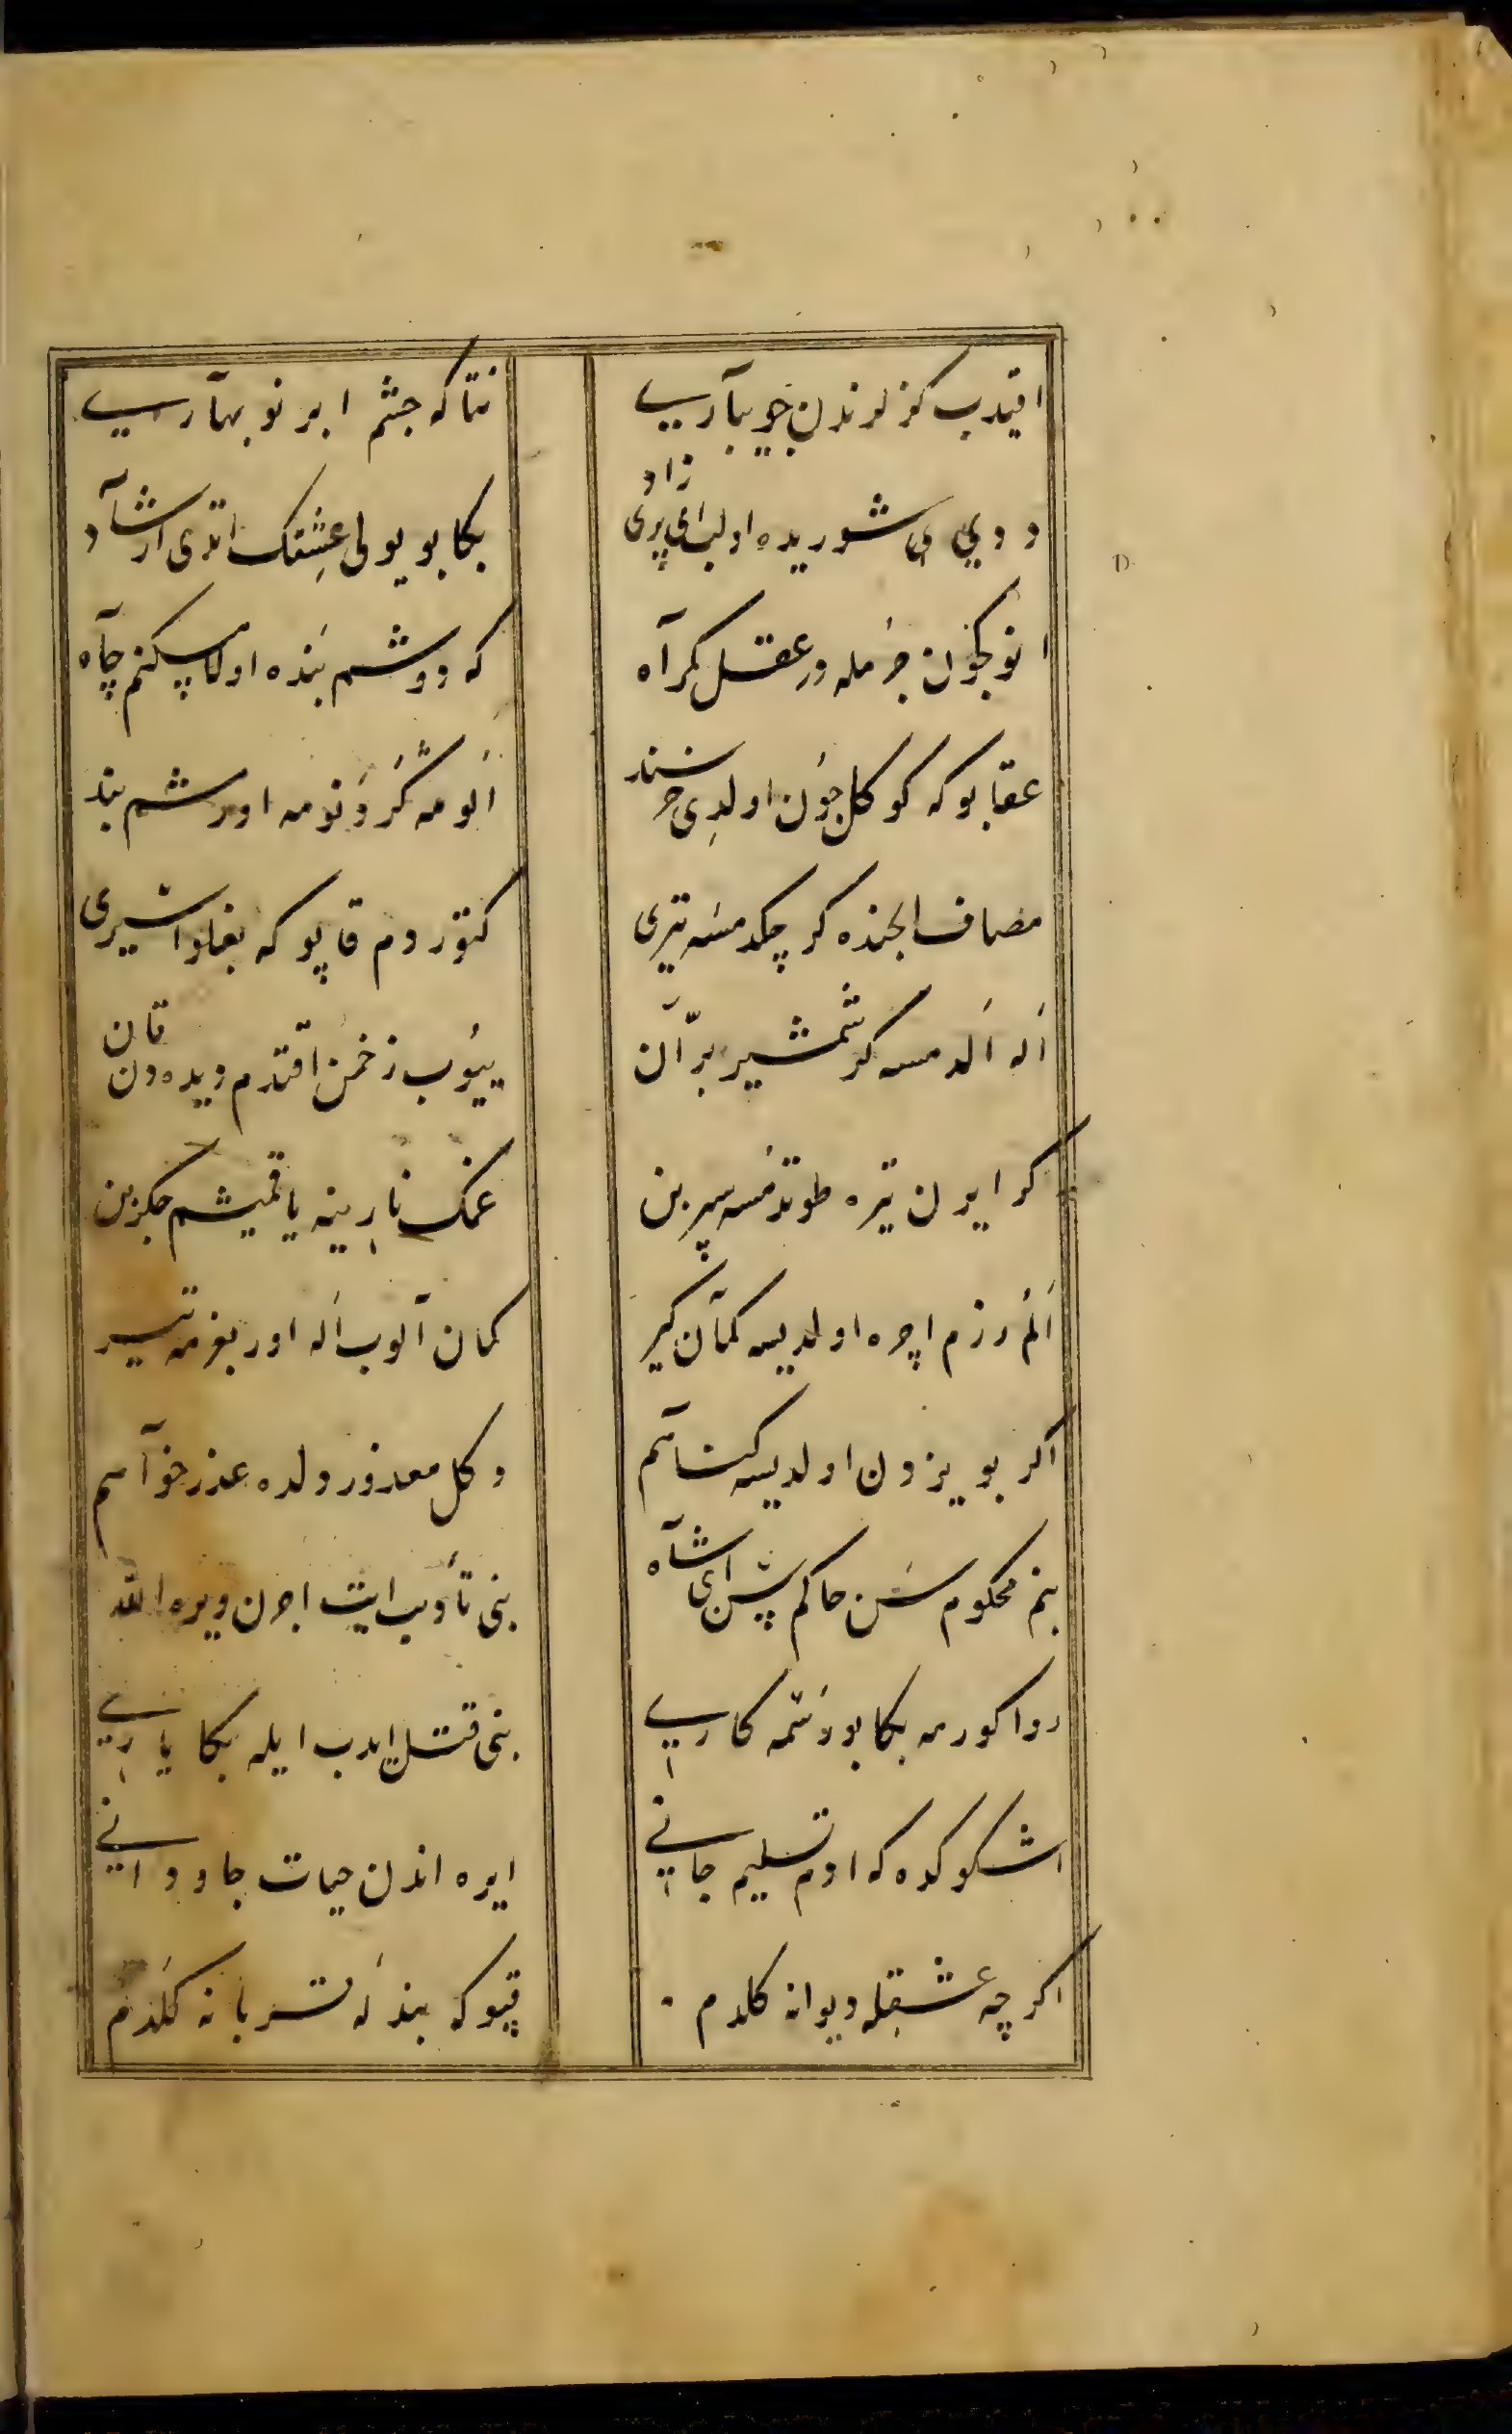 اقیدب کزلرندن جویبآری
نتاکه چشم ابر نو بهآری
ددی ای شوریده اولب ای پری زاد
بکا بو یولی عشقک اتدی ارشآد
انوکچون جمله در عقل کمرآه
که دوشم بنده اولا مسکنم چآه
عقابوکه کوکل چون اولدی خرسند
الومه کردنومه اورشم بند
مصاف ایچنده کر چکدمسه تیری
کتوردم قاپوکه بغلو اسیری
اله الدمسه کر شمشیر برّآن
ییوب زخمن اقتدم دیده دن قان
کر ایرن تیره طوتدمسه سپر بن
غمک نارینه یاقمیشم جکر بن
الم رزم اچره اولدیسه کمآن کیر
کمان آلوب اله اور بغرمه تیر
اکر بو یزدن اولدیسه کنآهم
دکل معذور ولده عذر خوآهم
بنم محکوم سن حاکم سن ای شآه
بنی تأدیب ایت اجرن ویره الله
روا کورمه بکا بو رسمه کاری
بنی قتل ایدب ایله بکا یاری
اشکوکده که ادم تسلیم جانی
ایره اندن حیات جاودانی
اکرچه عشقله دیوانه کلدم
قپوکه بنده قربانه کلدم